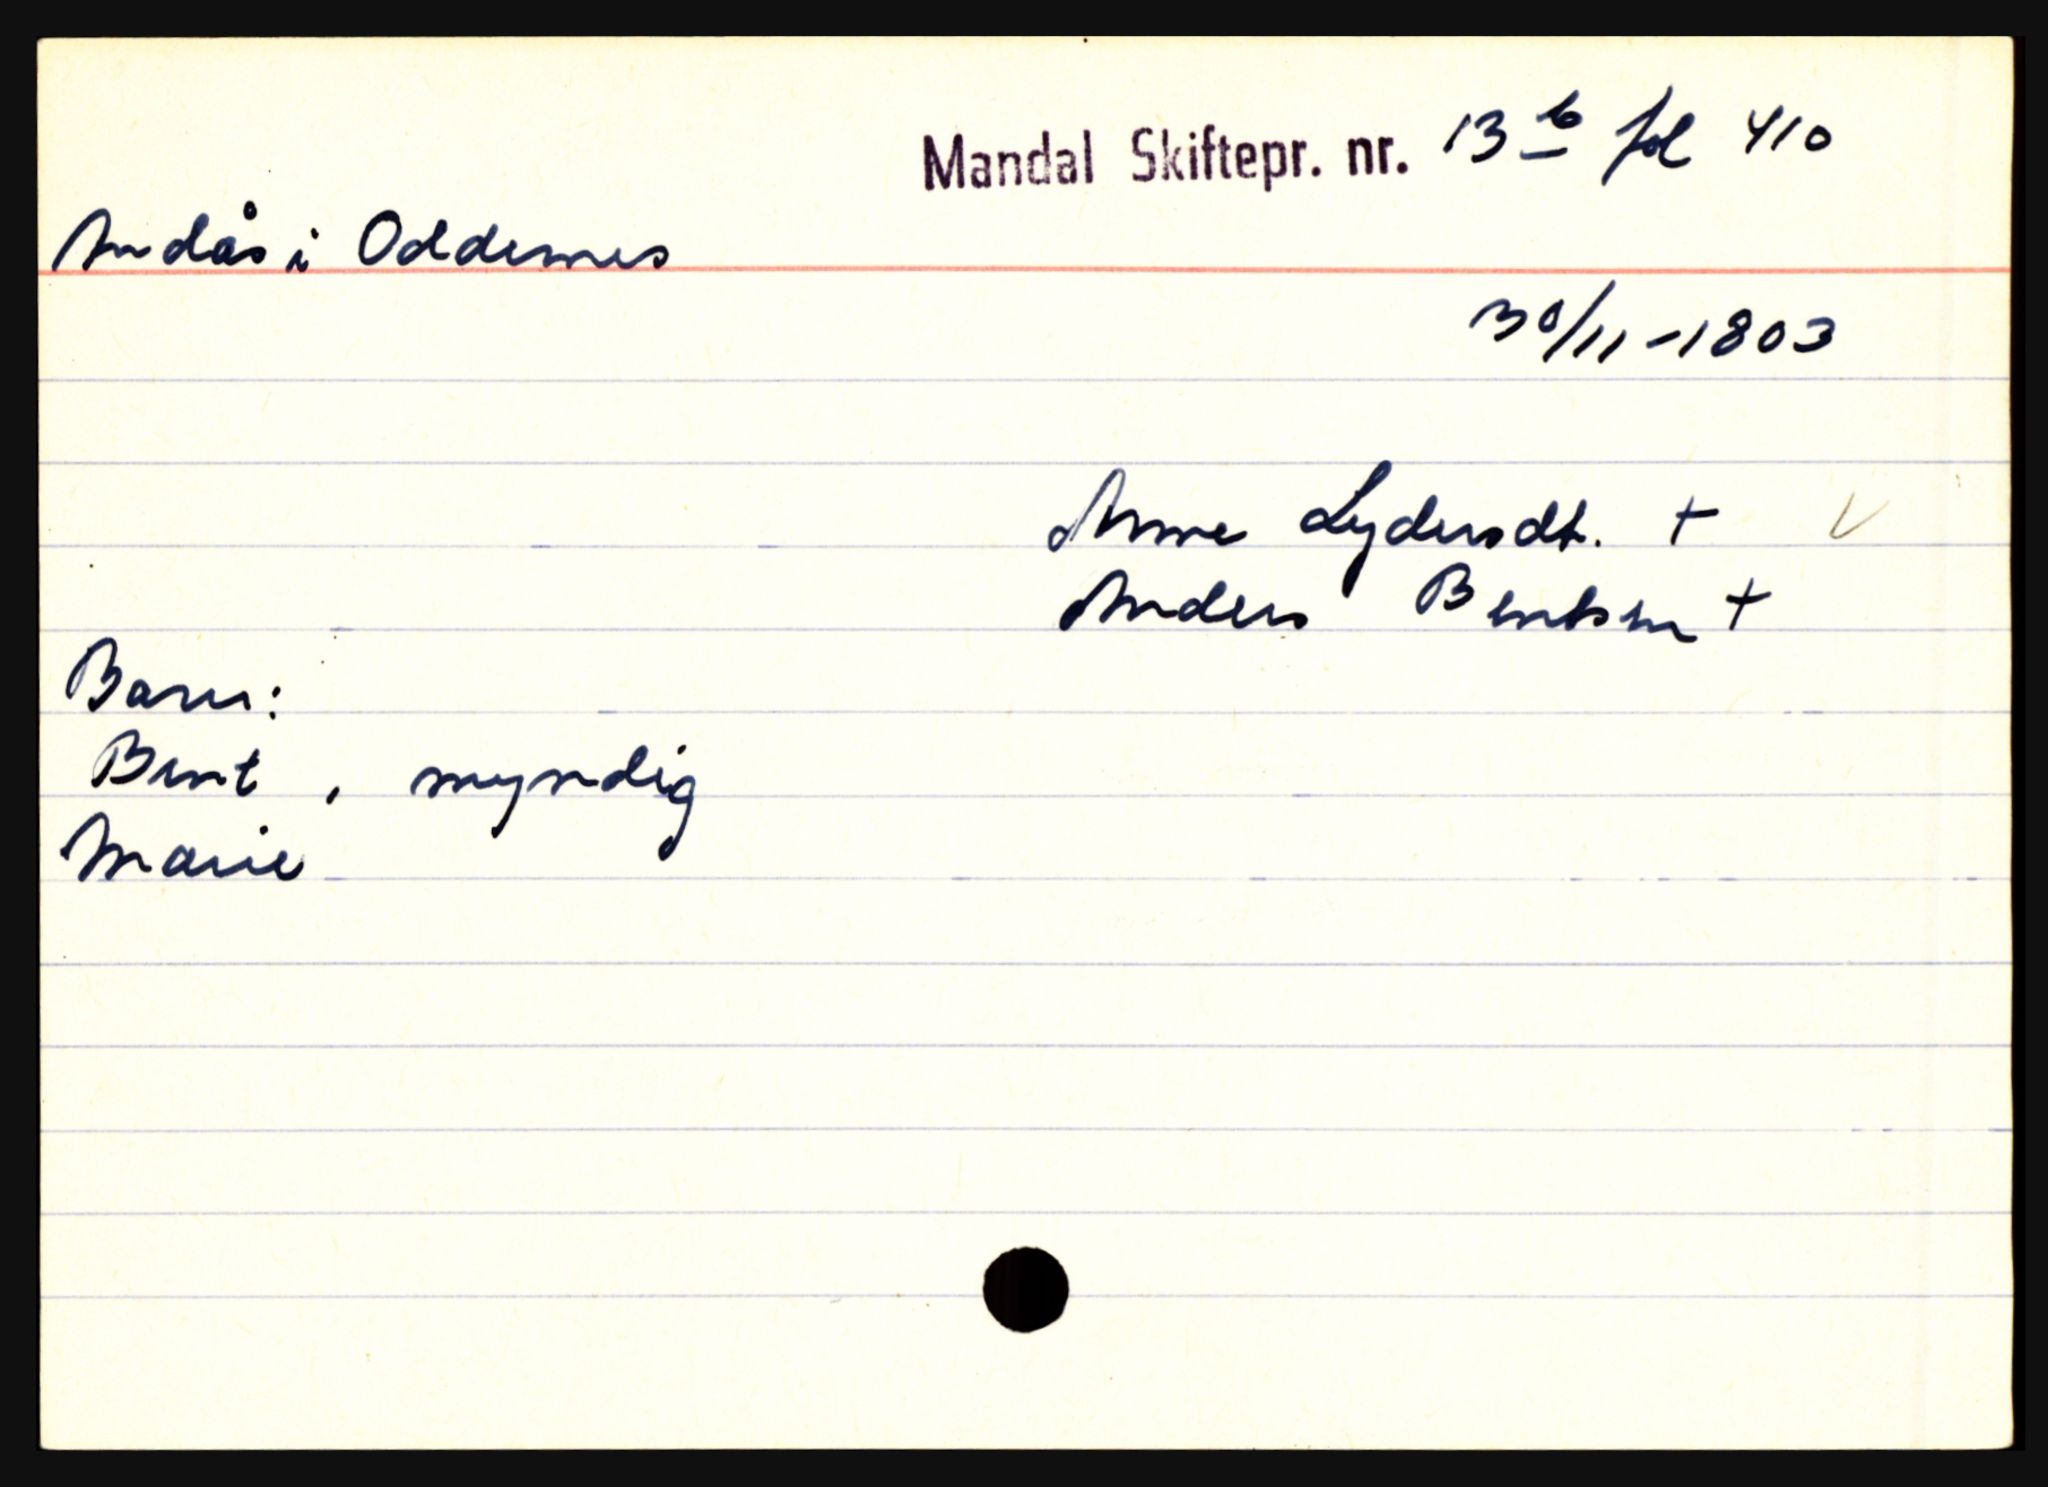 Mandal Skiftepr. nr. 13 b fol 410
Andås i Oddernes
30/11-1803
Anne Lydersdt. + V
Anders Bentsen +
Barn:
Bent, myndig
Marie